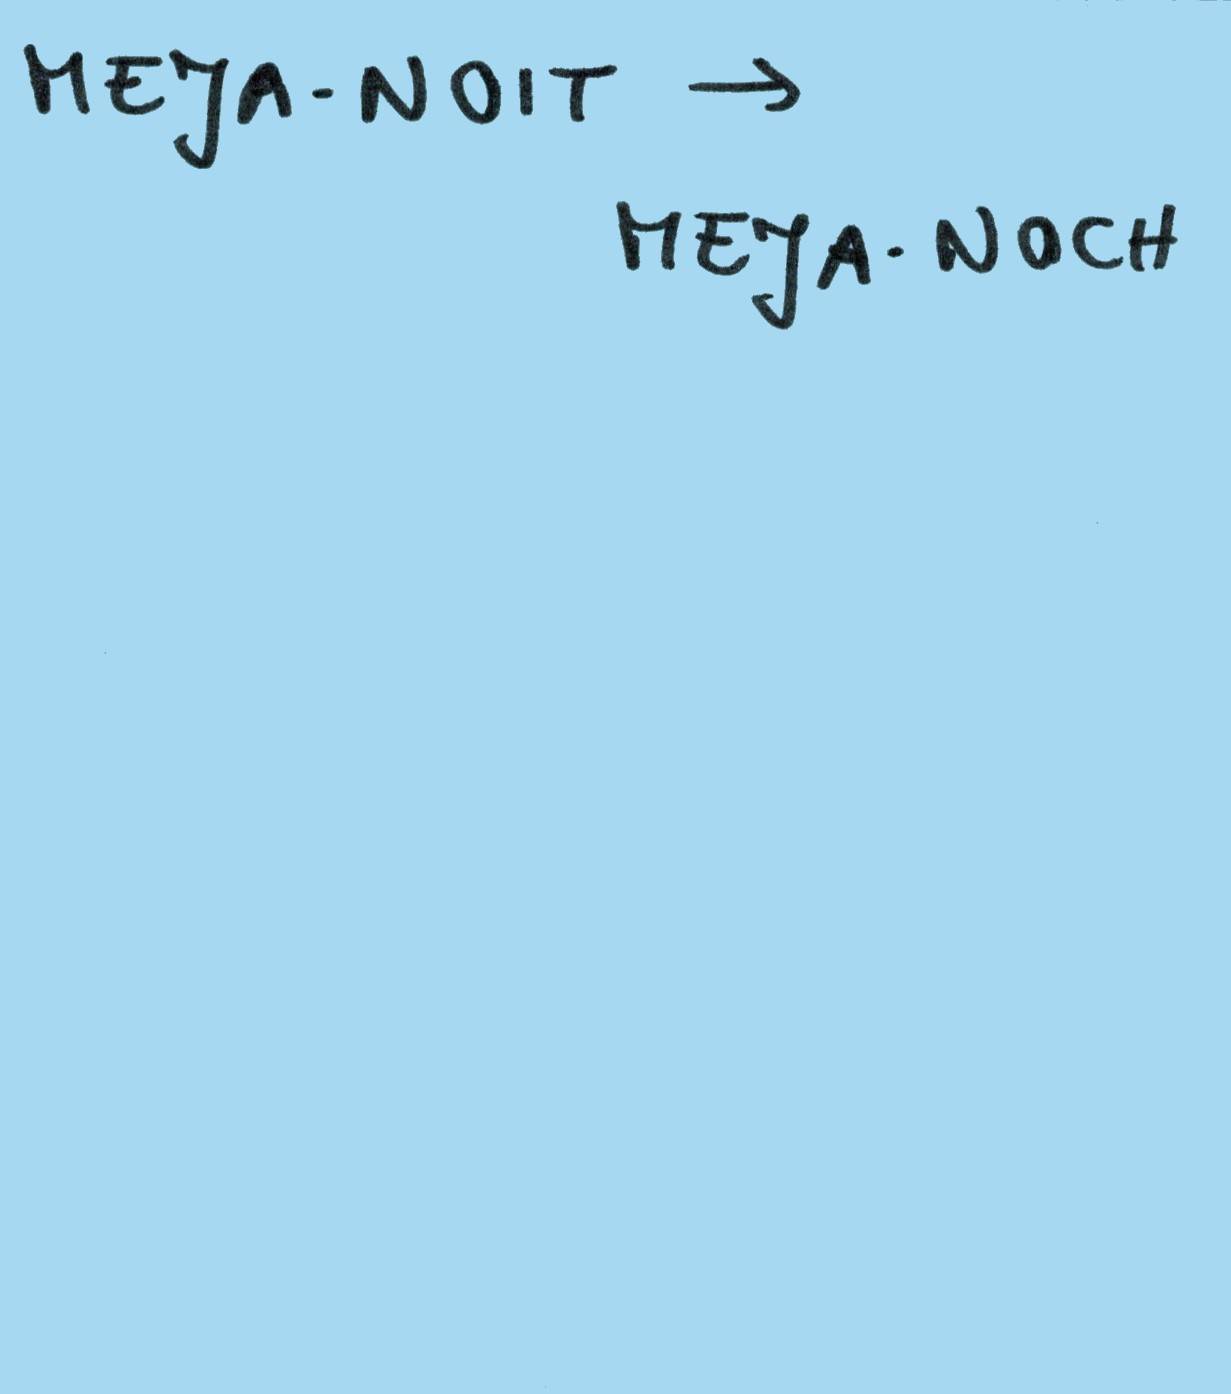 MEJA-NOIT →
MEJA-NOCH